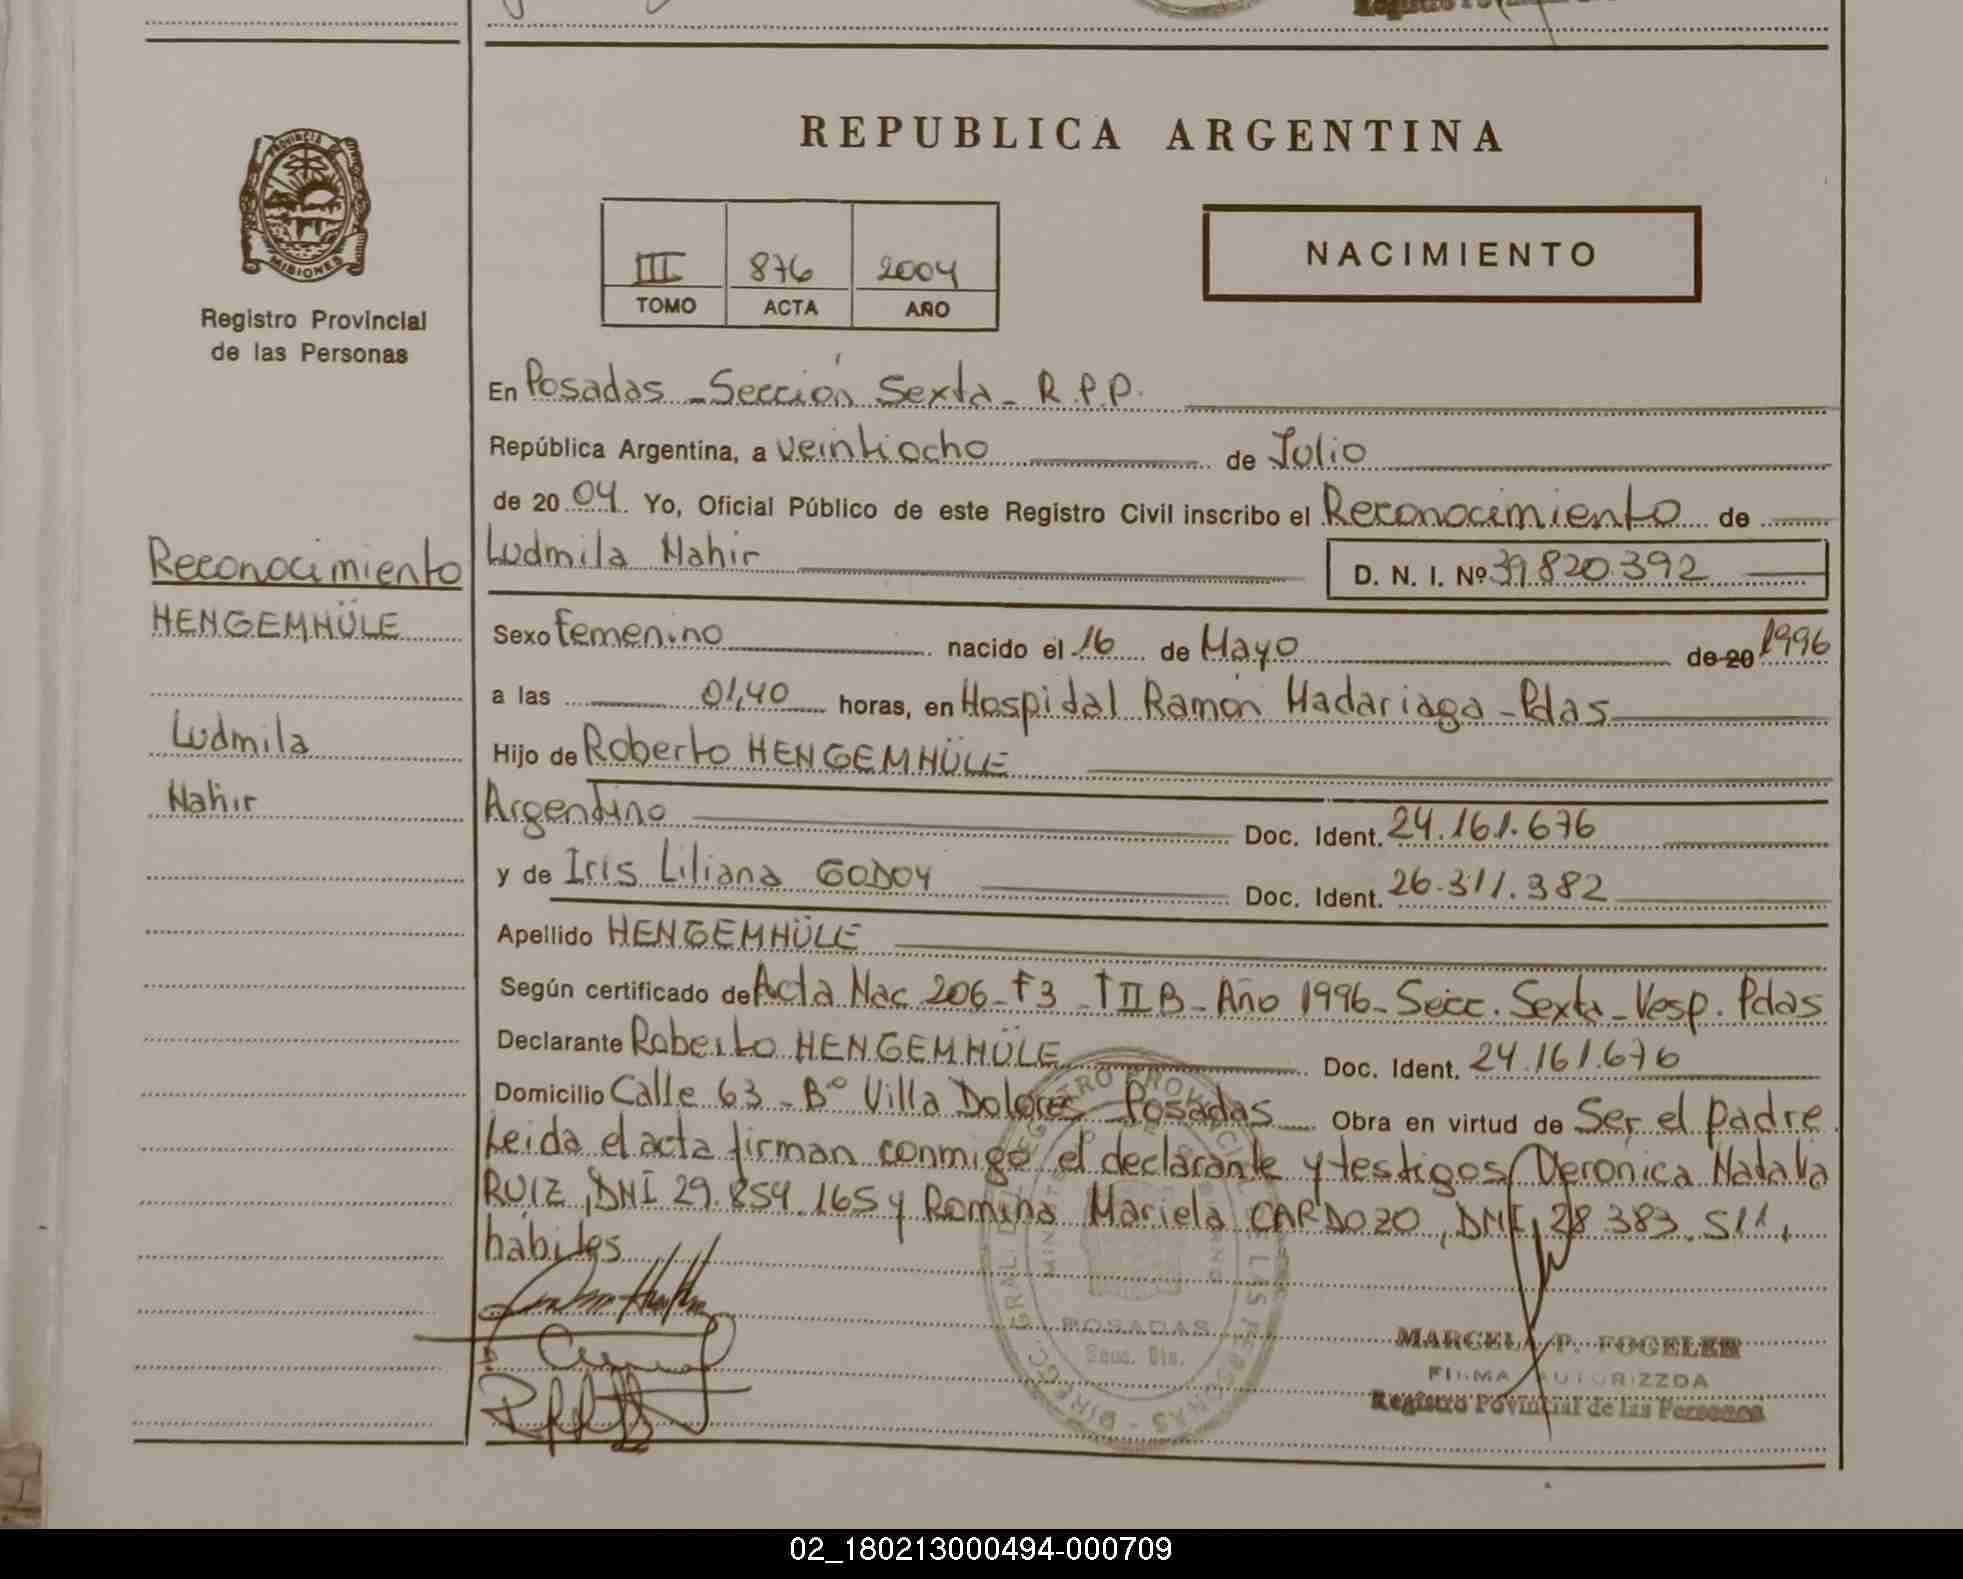 REPUBLICA ARGENTINA
PROVINCIA DE
MISIONES
Registro Provincial
de las Personas
III 876 2004
TOMO ACTA AÑO
NACIMIENTO
En Posadas - Sección Sexta - R.P.P.
República Argentina, a veintiocho de Julio
de 2004. Yo, Oficial Público de este Registro Civil inscribo el Reconocimiento de
Ludmila Nahir D. N. I. Nº 39.820.392
Reconocimiento
HENGEMHÜLE
Ludmila
Nahir
Sexo Femenino nacido el 16 de Mayo de 20 1996
a las 01,40 horas, en Hospidal Ramón Madariaga - Pdas
Hijo de Roberto HENGEMHÜLE
Argentino Doc. Ident. 24.161.676
y de Iris Liliana GODOY Doc. Ident. 26.311.382
Apellido HENGEMHÜLE
Según certificado de Acta Nac 206 - F3 - TIIB - Año 1996 - Secc. Sexta - Vesp. Pdas
Declarante Roberto HENGEMHÜLE Doc. Ident. 24.161.676
Domicilio Calle 63 - Bº Villa Dolores - Posadas Obra en virtud de Ser el padre.
Leida el acta firman conmigo el declarante y testigos Veronica Natalia
RUIZ, DNI 29.854.165 y Romina Mariela CARDOZO, DNI, 28.383.511,
hábiles
POSADAS
MARCELA P. FOGELER
FIRMA AUTORIZZDA
Registro Povincial de las Personas
02_180213000494-000709